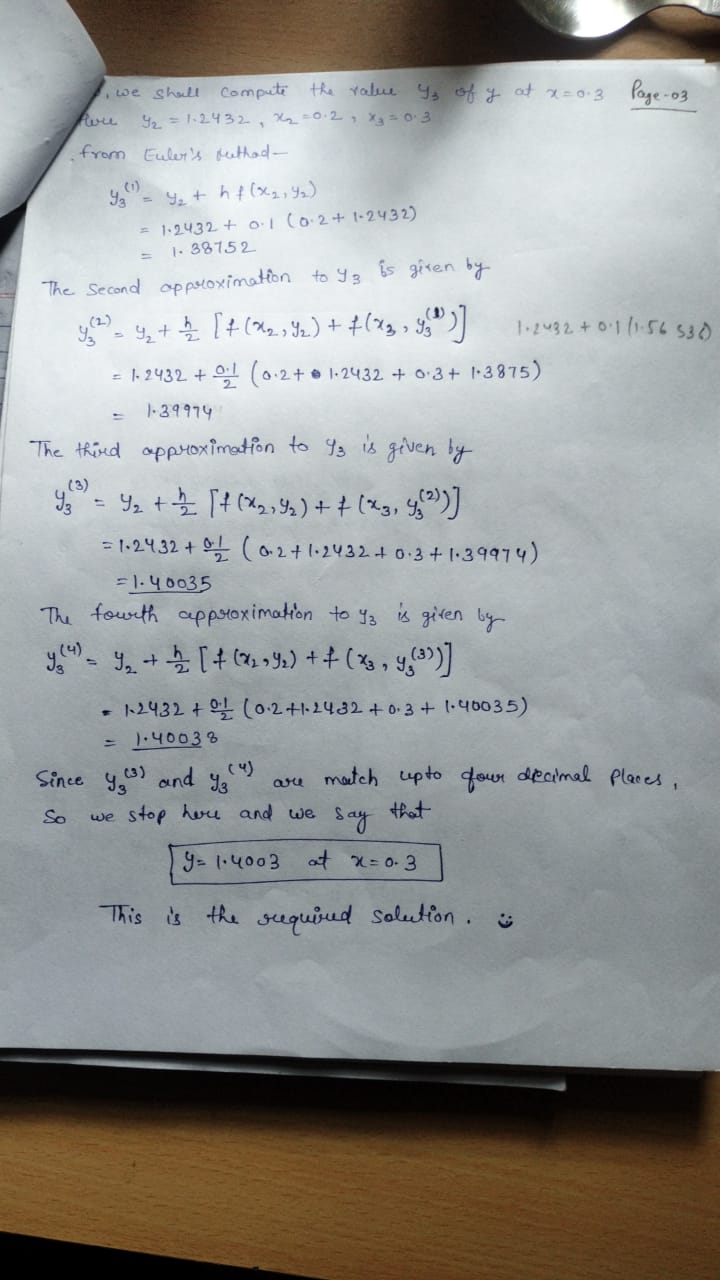 , we shall compute the value y₃ of y at x=0.3 Page-03
Here y₂ = 1.2432, x₂=0.2, x₃=0.3
from Euler's Method—
y₃⁽¹⁾ = y₂ + h f(x₂, y₂)
= 1.2432 + 0.1 (0.2 + 1.2432)
= 1.38752
The Second approximation to y₃ is given by
y₃⁽²⁾ = y₂ + h/2 [f(x₂, y₂) + f(x₃, y₃⁽¹⁾)] 1.2432 + 0.1 (1.56 536)
= 1.2432 + 0.1/2 (0.2 + 1.2432 + 0.3 + 1.3875)
= 1.39974
The third approximation to y₃ is given by
y₃⁽³⁾ = y₂ + h/2 [f(x₂, y₂) + f(x₃, y₃⁽²⁾)]
= 1.2432 + 0.1/2 (0.2 + 1.2432 + 0.3 + 1.39974)
= 1.40035
The fourth approximation to y₃ is given by
y₃⁽⁴⁾ = y₂ + h/2 [f(x₂, y₂) + f(x₃, y₃⁽³⁾)]
= 1.2432 + 0.1/2 (0.2 + 1.2432 + 0.3 + 1.40035)
= 1.40038
Since y₃⁽³⁾ and y₃⁽⁴⁾ are match upto four decimal places,
So we stop here and we say that
y = 1.4003 at x = 0.3
This is the required solution.